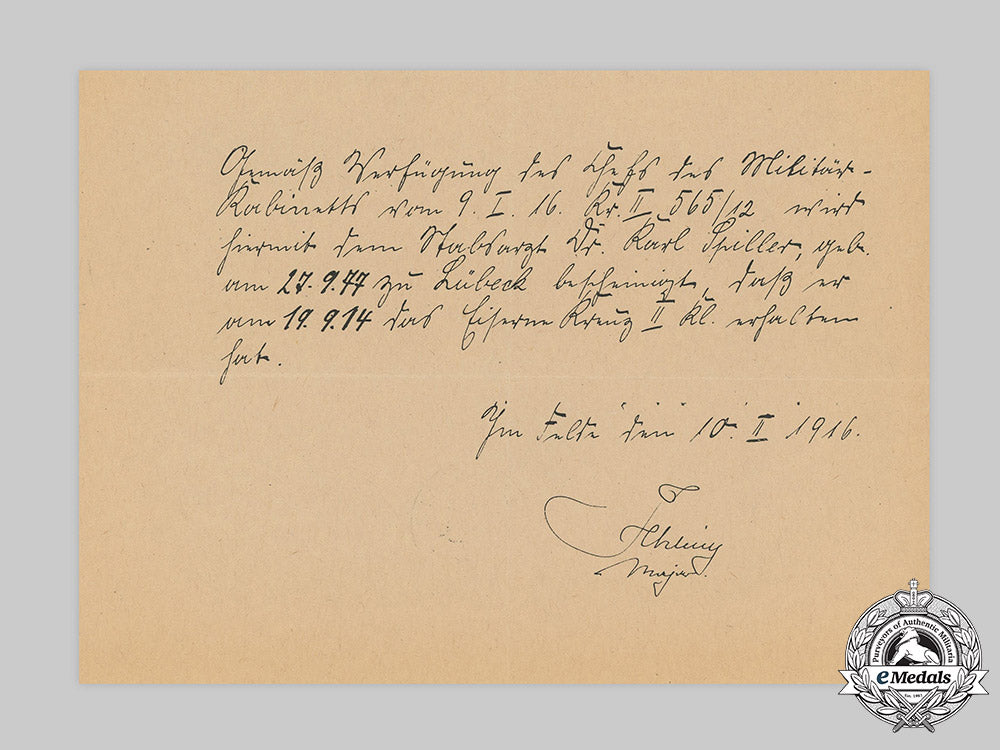 Gemäß Verfügung des Chefs des Militär-
Kabinetts vom 9. I. 16. Nr. II 565/12 wird
hiermit dem Stabsarzt Dr. Karl Spiller, geb.
am 27.9.77 zu Lübeck bescheinigt, daß er
am 19.9.14 das Eiserne Kreuz II Kl. erhalten
hat.
Im Felde den 10. II 1916.
Major.
Purveyors of Authentic Militaria
eMedals
Est. 1967